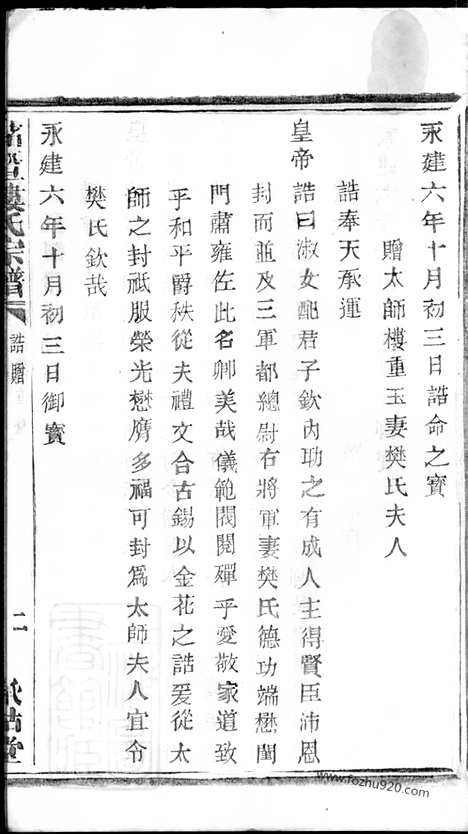 永建六年十月初三日誥命之寳
贈太師樓重玉妻樊氏夫人
誥奉天承運
皇帝誥曰淑女配君子欽內功之有成人主得賢臣沛恩
封而並及三軍都總尉右將軍妻樊氏德功端懋閨
門肅雍佐此名卿美哉儀範閥閱殫乎愛敬家道致
乎和平爵秩從夫禮文合古錫以金花之誥爰從太
師之封祗服榮光懋膺多福可封爲太師夫人宜令
樊氏欽哉
永建六年十月初三日御寳
樓氏宗譜
誥贈
二
www.fozhu920.com